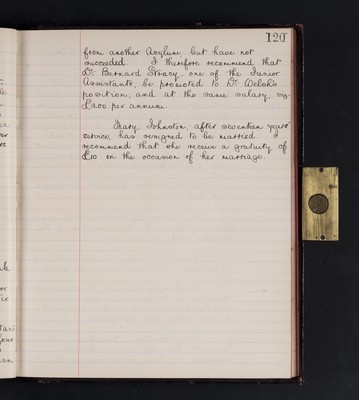 120
from another Asylum, but have not
succeeded. I therefore recommend that
Dr. Bernard Stracy, one of the Junior
Assistants, be promoted to Dr.
position, and at the same salary, viz.
£200 per annum.
Mary Johnston, after seventeen years'
service, has resigned to be married. I
recommend that she receive a gratuity of
£10 on the occasion of her marriage.